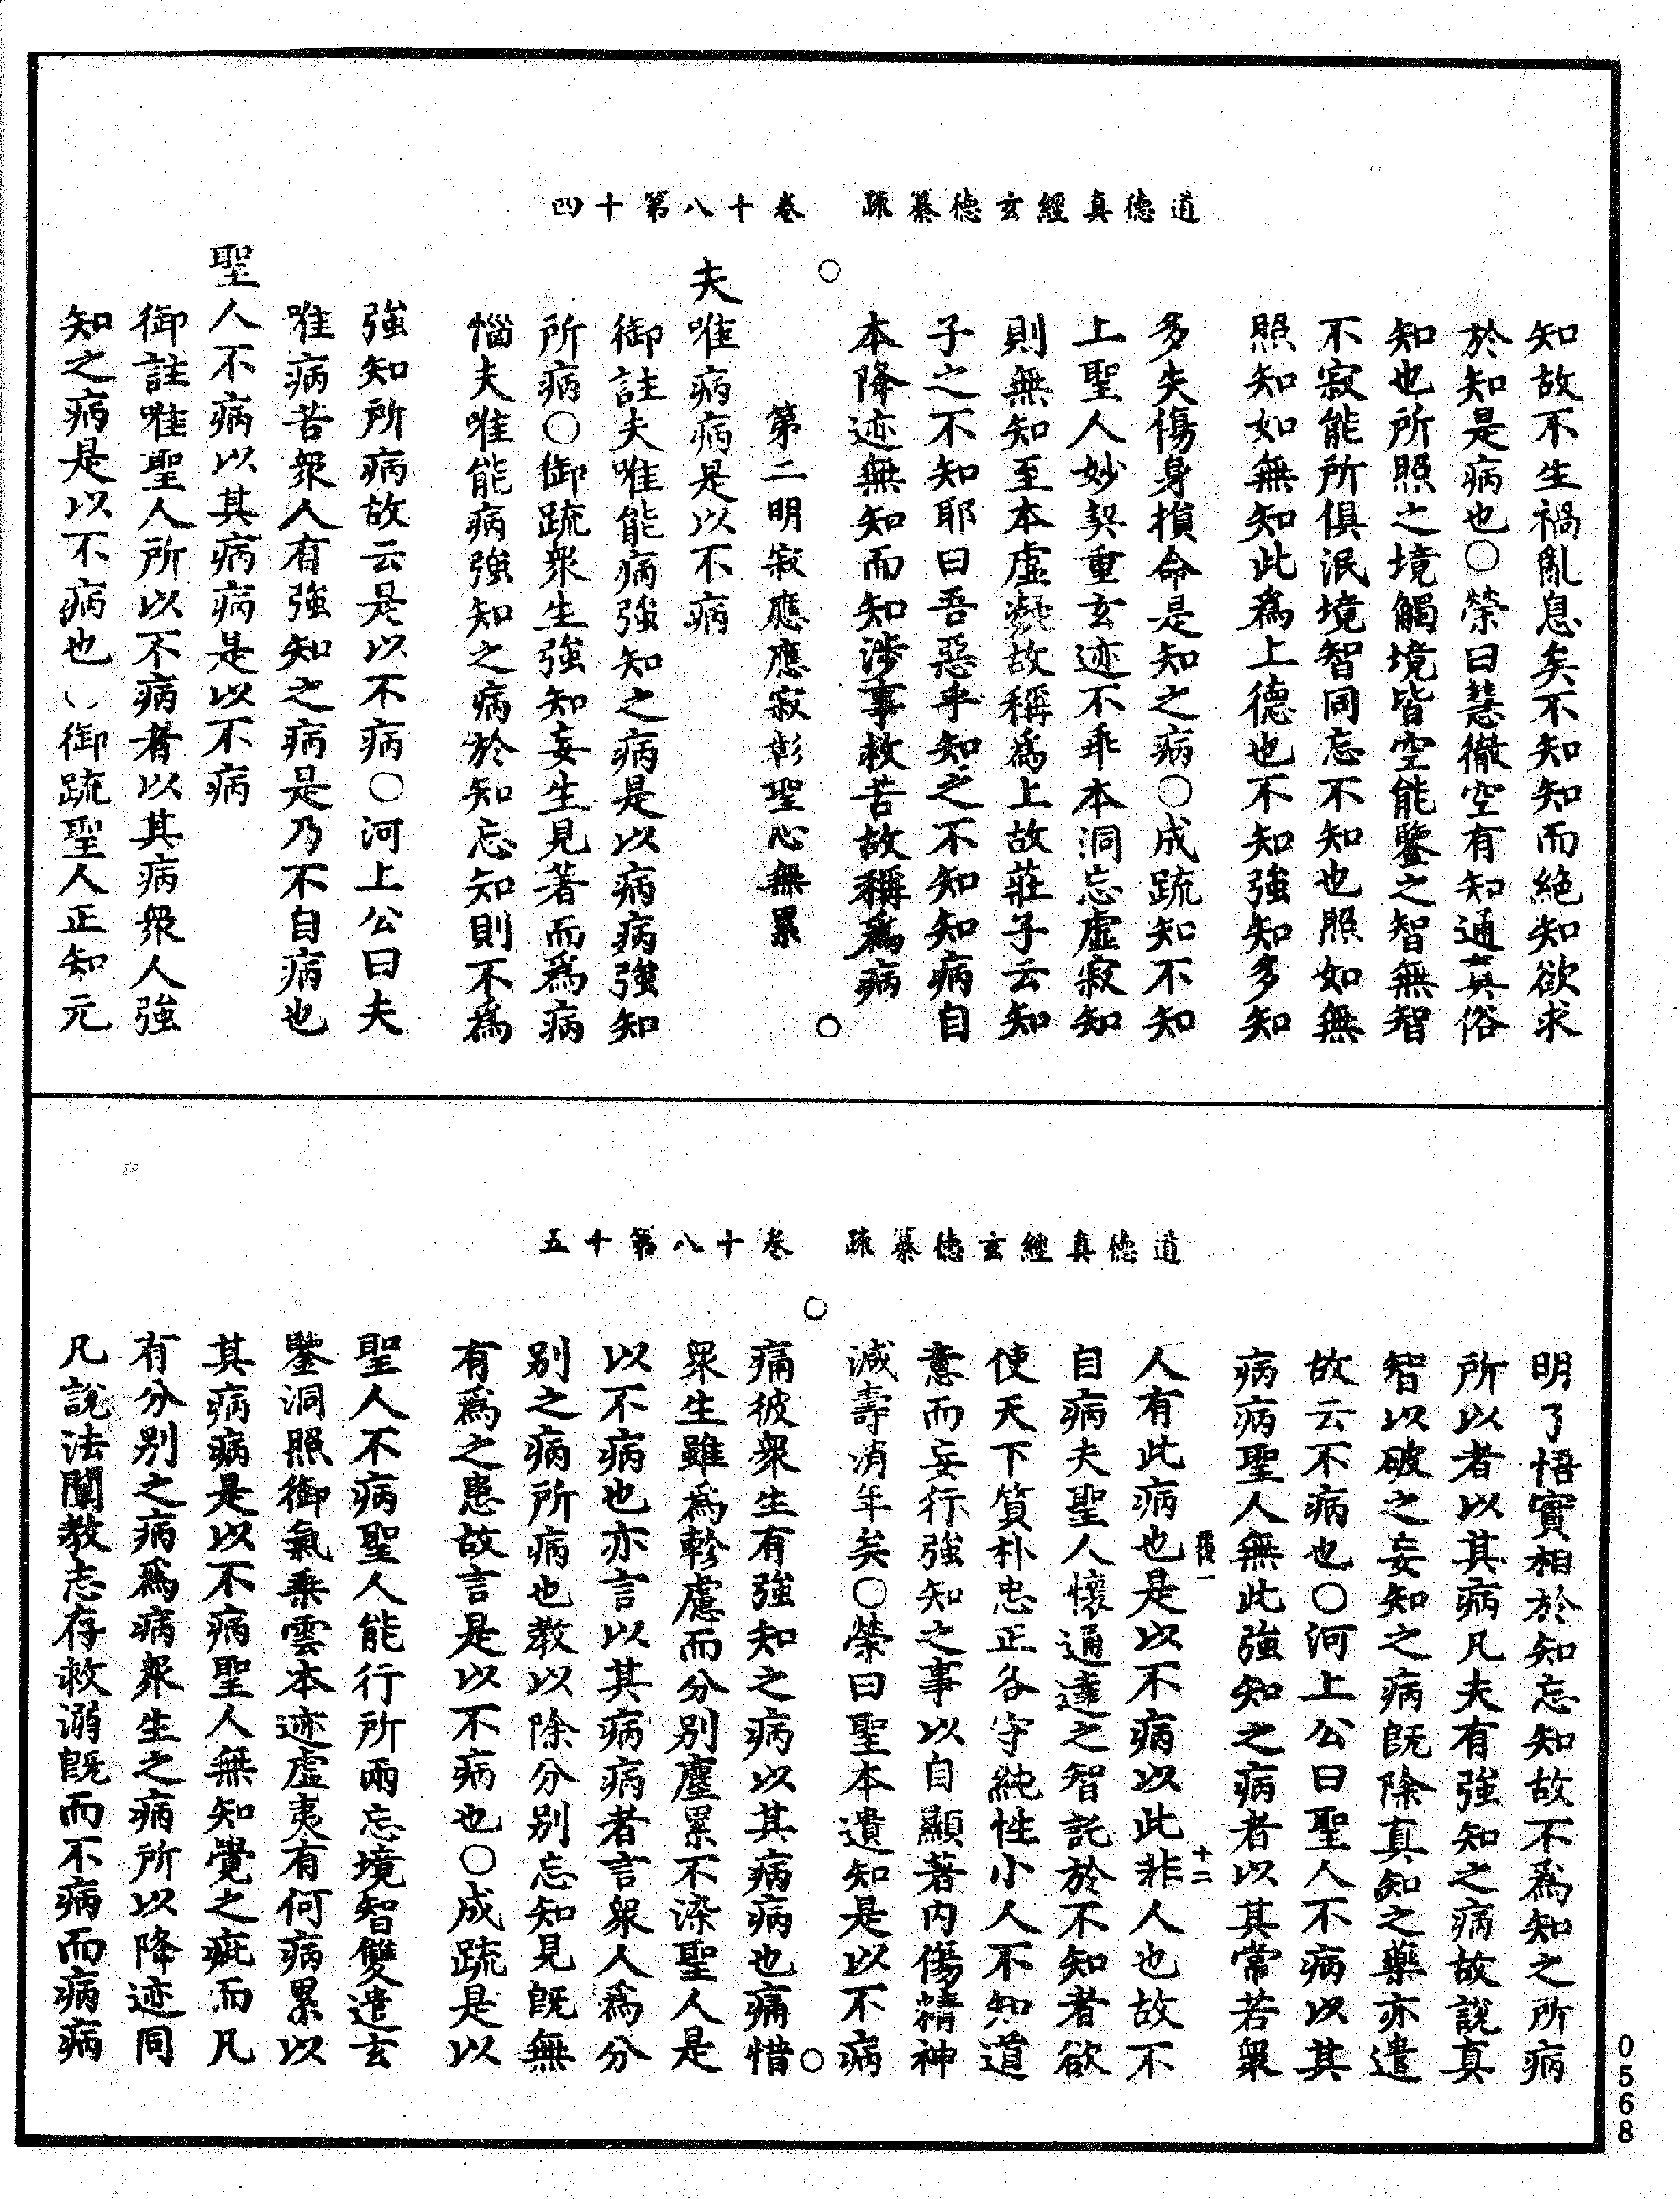 道德真經玄德纂疏　卷十八第十四
知故不生禍亂息矣不知知而絕知欲求
於知是病也○榮曰慧徹空有知通真俗
知也所照之境觸境皆空能鑒之智無智
不寂能所俱泯境智同忘不知也照如無
照知如無知此為上德也不知強知多知
多失傷身損命是知之病○成疏知不知
上聖人妙契重玄迹不乖本洞忘虛寂知
則無知至本虛凝故稱為上故莊子云知
子之不知耶曰吾惡乎知之不知知病自
本降迹無知而知涉事救苦故稱為病
○
○
第二明寂應應寂彰聖心無累
夫唯病病是以不病
御註夫唯能病強知之病是以病病強知
所病○御疏眾生強知妄生見著而為病
惱夫唯能病強知之病於知忘知則不為
強知所病故云是以不病○河上公曰夫
唯病苦眾人有強知之病是乃不自病也
聖人不病以其病病是以不病
御註唯聖人所以不病者以其病眾人強
知之病是以不病也○御疏聖人正知元
道德真經玄德纂疏　卷十八第十五
明了悟實相於知忘知故不為知之所病
所以者以其病凡夫有強知之病故說真
智以破之妄知之病既除真知之藥亦遣
故云不病也○河上公曰聖人不病以其
病病聖人無此強知之病者以其常苦眾
人有此病也是以不病以此非人也故不
十二
自病夫聖人懷通達之智託於不知者欲
使天下質朴忠正各守純性小人不知道
意而妄行強知之事以自顯著內傷精神
減壽消年矣○榮曰聖本遣知是以不病
○
○
痛彼眾生有強知之病以其病病也痛惜
眾生雖為軫慮而分別塵累不染聖人是
以不病也亦言以其病病者言眾人為分
別之病所病也教以除分別忘知見既無
有為之患故言是以不病也○成疏是以
聖人不病聖人能行所兩忘境智雙遣玄
鑒洞照御氣乘雲本迹虛夷有何病累以
其病病是以不病聖人無知覺之疵而凡
有分別之病為病眾生之病所以降迹同
凡說法闡教志存救溺既而不病而病病
0568